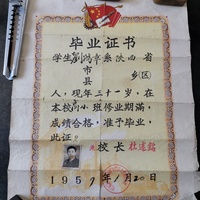 毕业证书
学生刘鸿章系陕西省
市
县
乡(区)
人，现年三十一岁，在
本校高小班修业期满，
成绩合格，准予毕业，
此证
校长杜遂铭
1957年1月20日